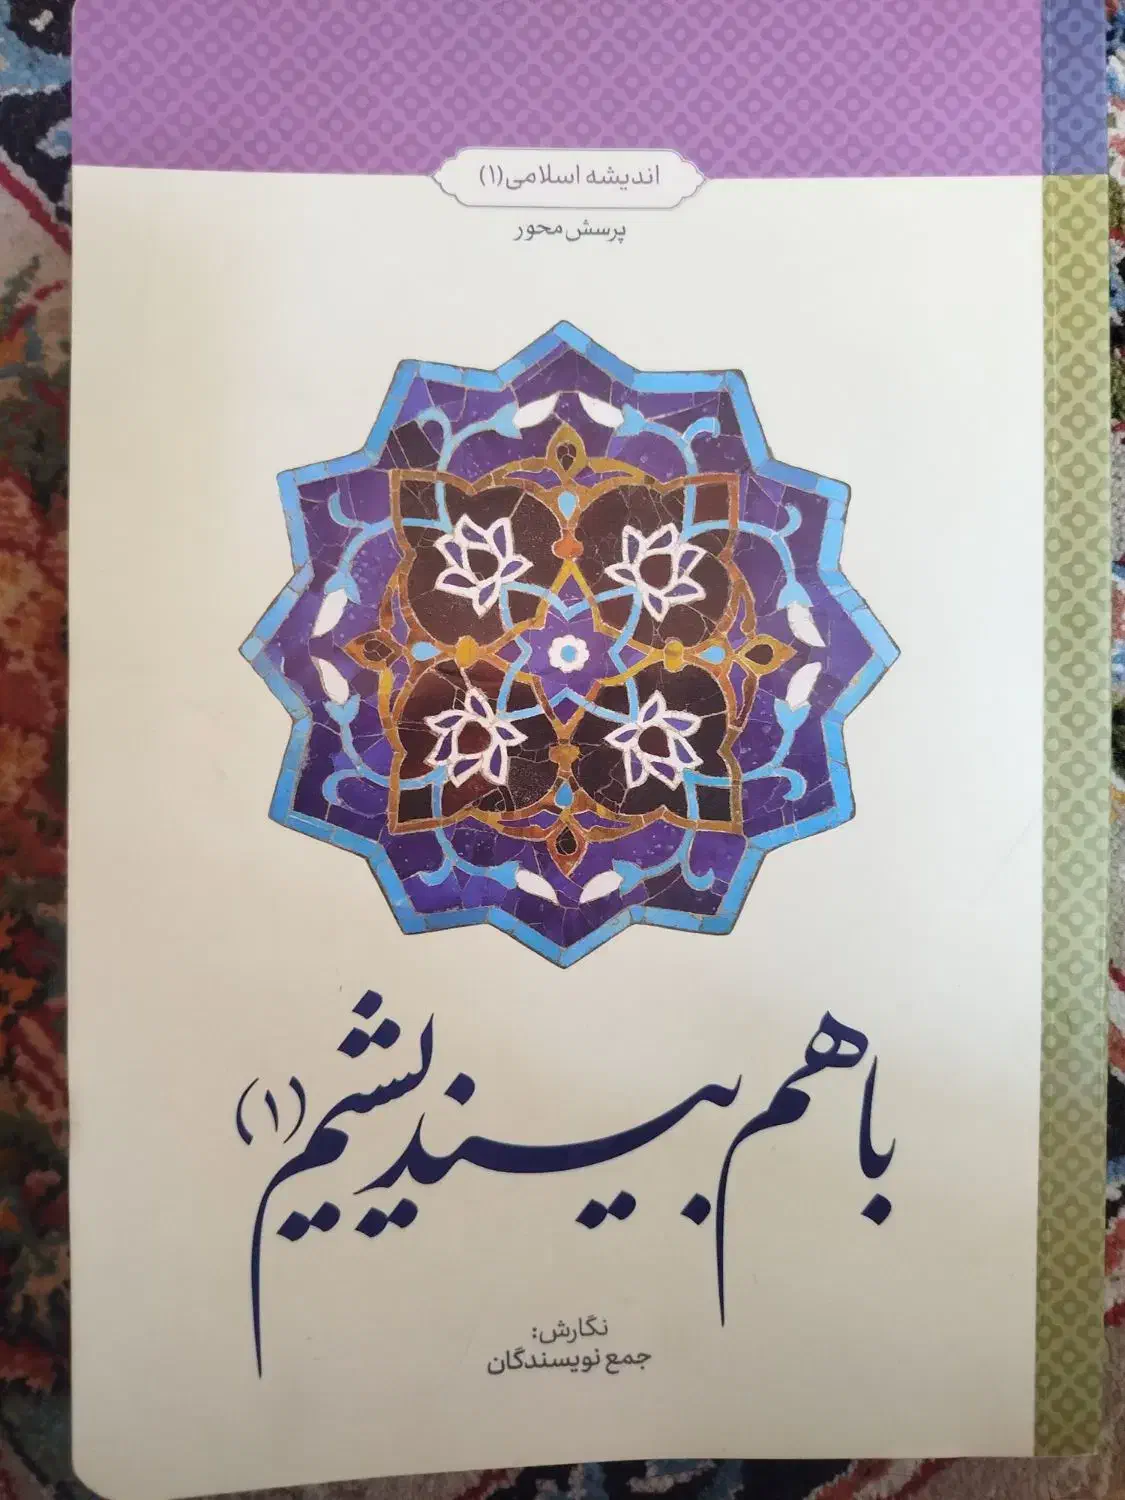 اندیشه اسلامی (۱)
پرسش محور
با هم بیندیشیم (۱)
نگارش:
جمع نویسندگان